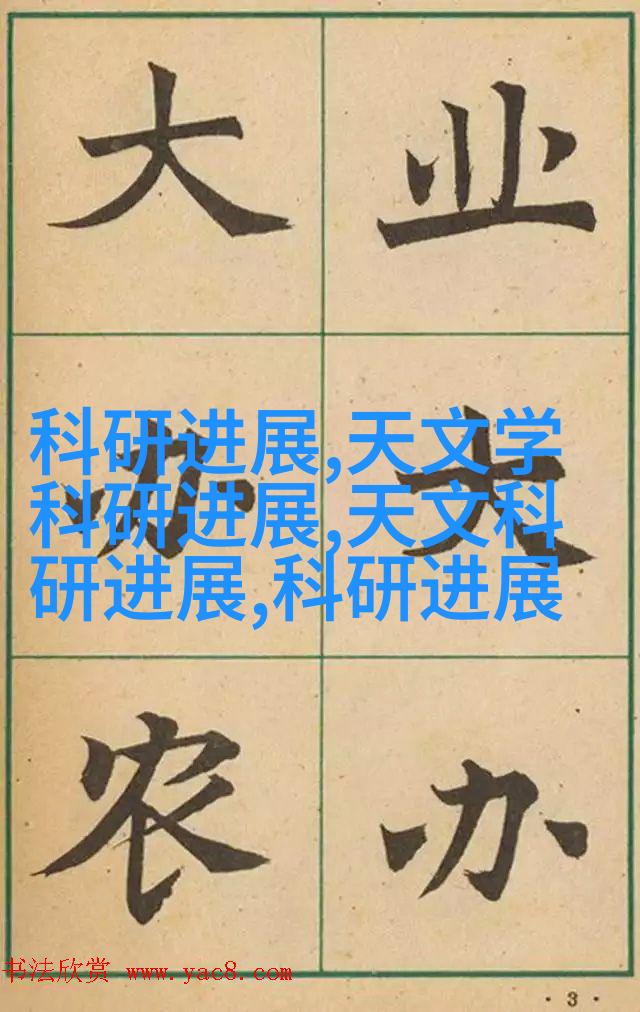 业大办
大办农
科研进展,天文学
科研进展,天文科
研进展,科研进展
书法欣赏 www.yac8.com
·3·